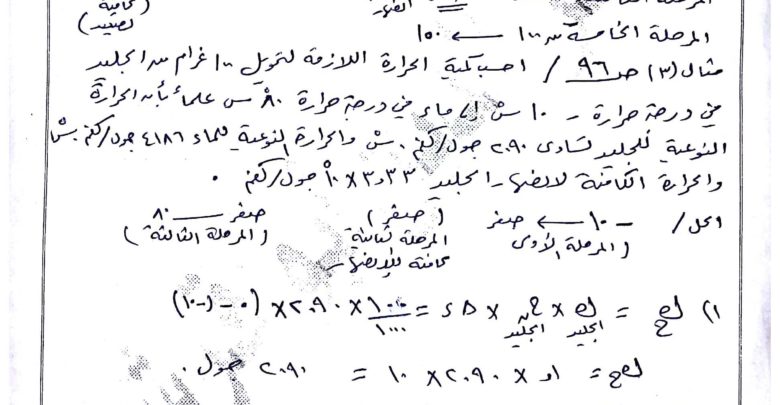 (كامنة
الصهر
تصعيد)
المرحلة الخامسة من ١٠٠ ← ١٥٠
مثال (٣) صـ ٩٦ / احسب كمية الحرارة اللازمة لتحويل ١٠٠ غرام من الجليد
في درجة حرارة - ١٠ سْ إلى ماء في درجة حرارة ٨٠ سْ علماً بأن الحرارة
النوعية للجليد تساوي ٢٠٩٠ جول/كغم . سْ والحرارة النوعية للماء ٤١٨٦ جول/كغم . سْ
والحرارة الكامنة لانصهار الجليد ٣٣و٣ × ١٠ جول/كغم .
الحل / - ١٠ ← صفر (صفر) صفر ٨٠
(المرحلة الأولى) المرحلة الثانية (المرحلة الثالثة)
كامنة للانصهار
١) = ك × × ∆ د = ١٠٠/١٠٠٠ × ٢٠٩٠ × (٠ - (-١٠))
الجليد الجليد
= ١و × ٢٠٩٠ × ١٠ = ٢٠٩٠ جول .